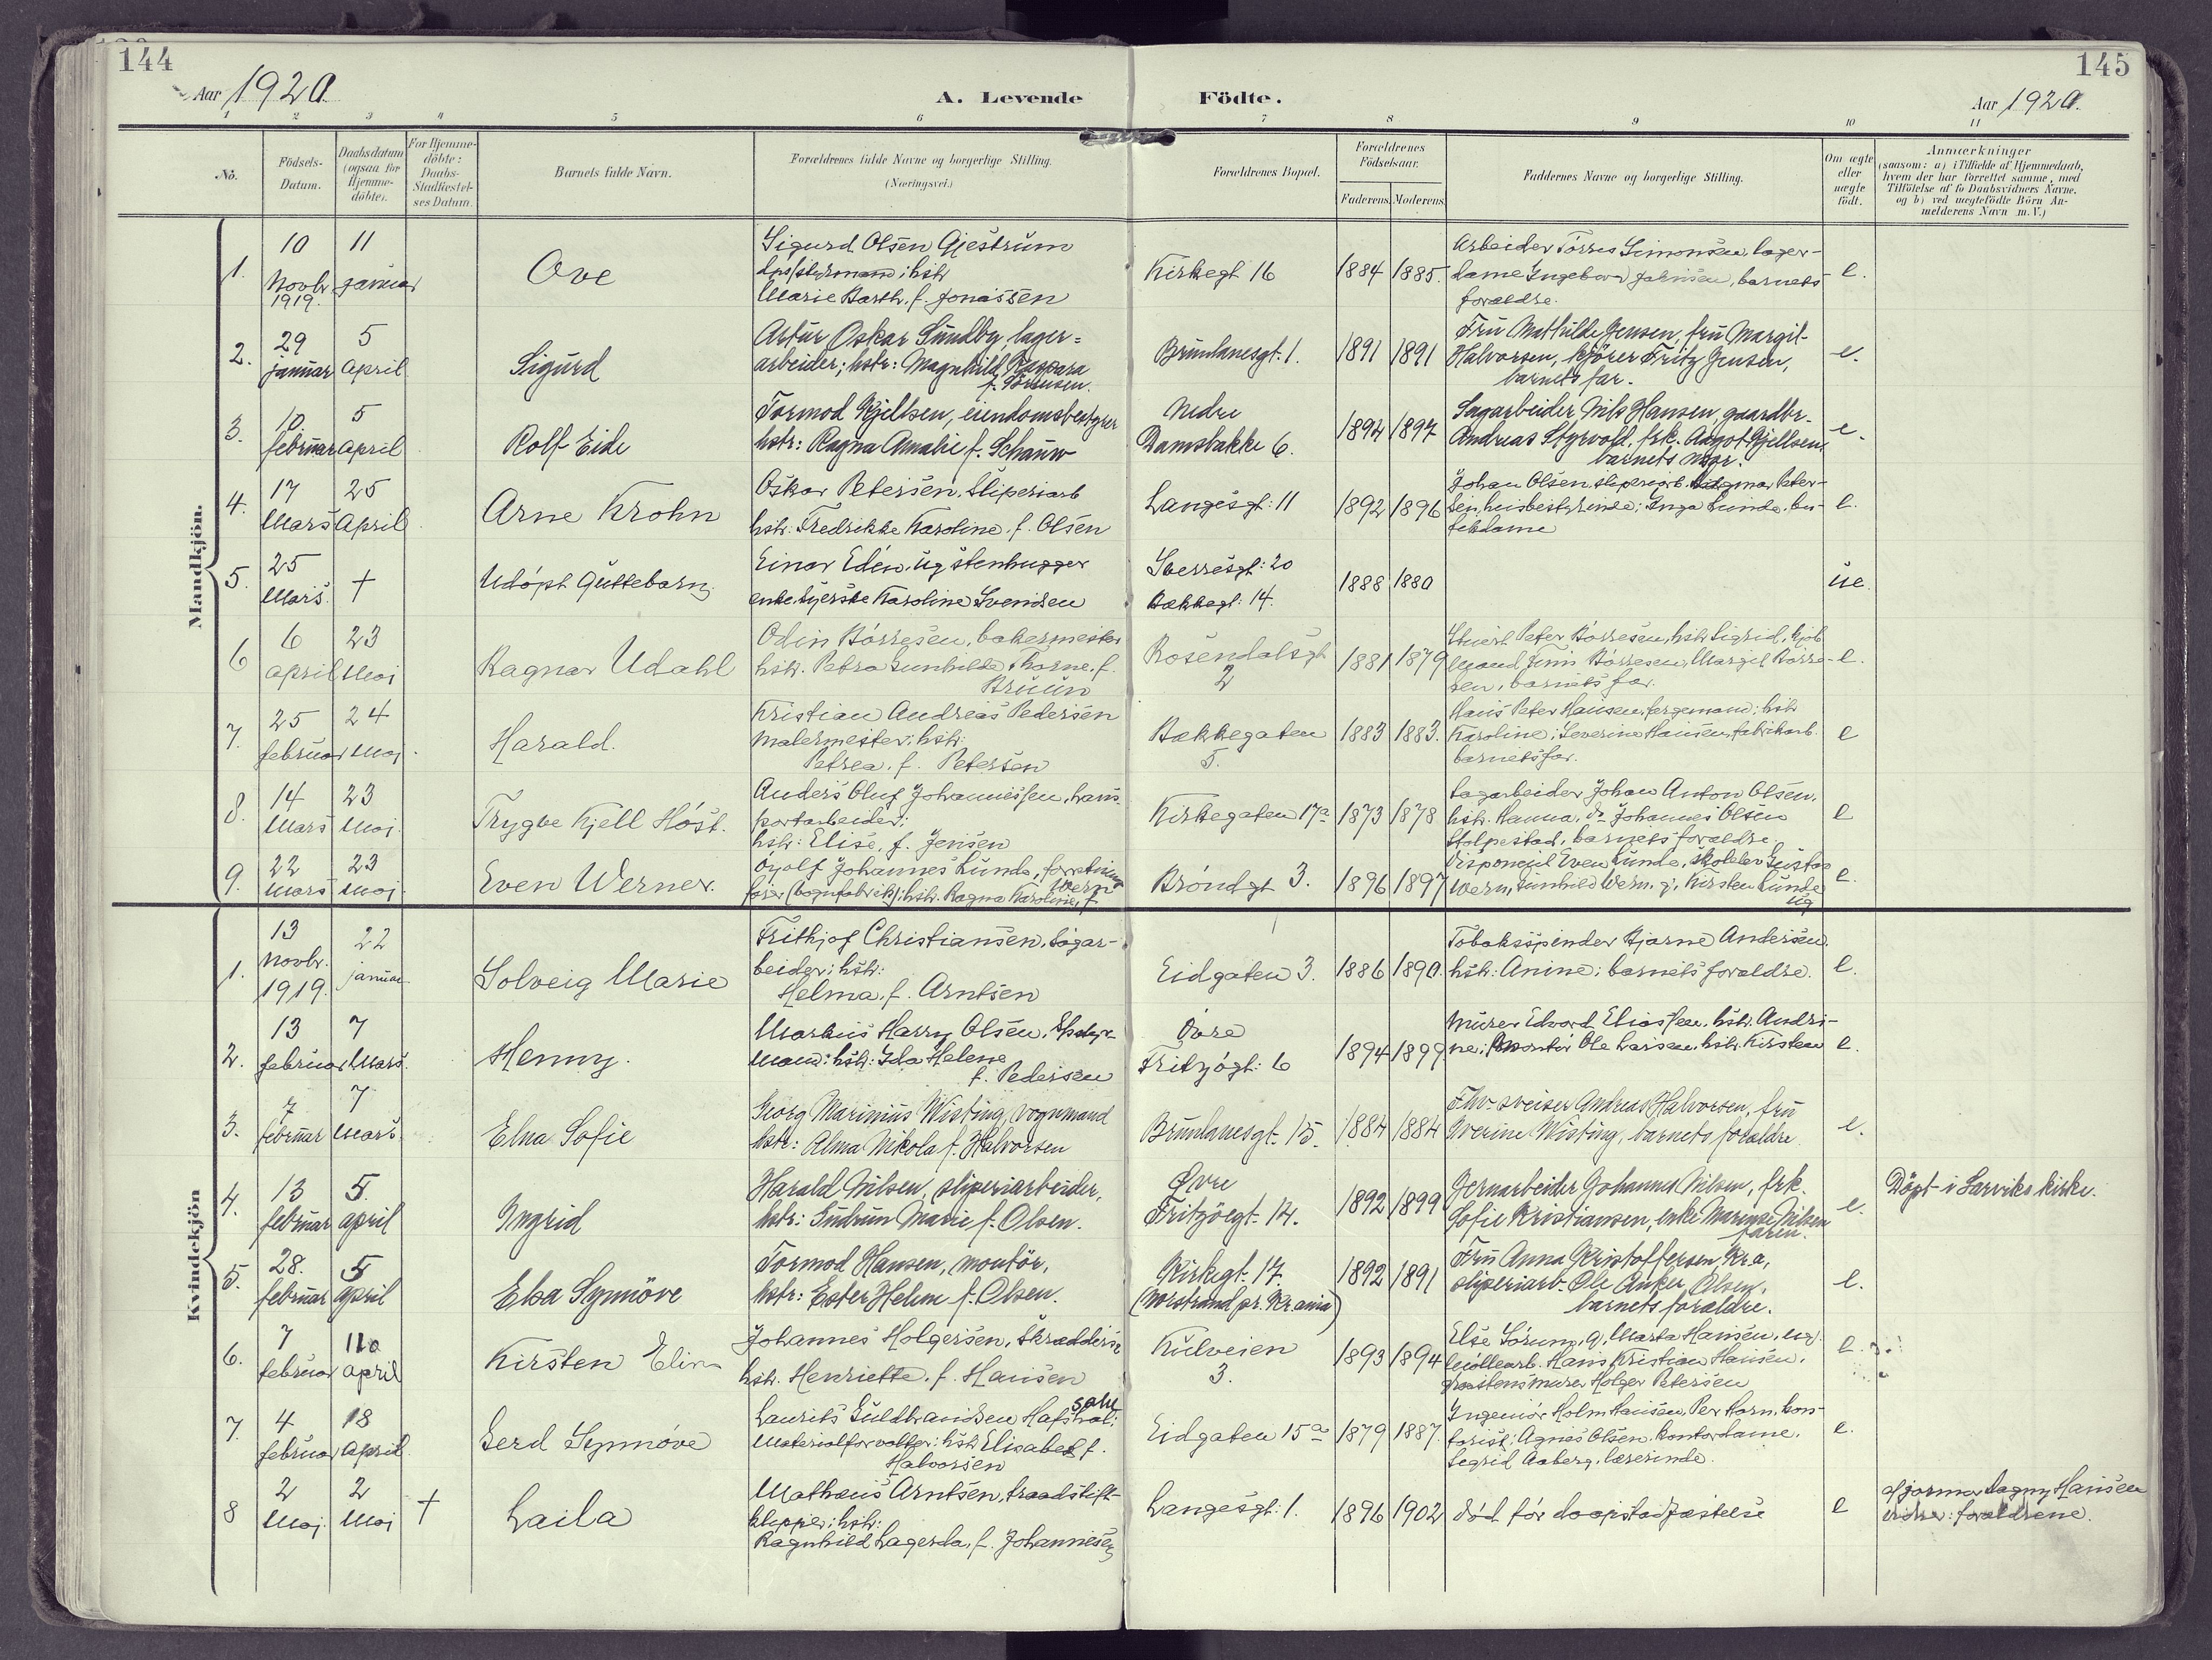 144
145
Aar 1920.
A. Levende
Födte.
Aar 1920.
1 2 3 4 5 6 7 8 9 10 11
No.
Födsels-
Datum.
Daabsdatum
(ogsaa for
Hjemme-
döbte).
For Hjemme-
döbte:
Daabs-
Stadfæstel-
ses Datum.
Barnets fulde Navn.
Forældrenes fulde Navne og borgerlige Stilling.
(Næringsvei.)
Forældrenes Bopæl.
Forældrenes
Födselsaar.
Faderens.
Moderens.
Faddernes Navne og borgerlige Stilling.
Om ægte
eller
uægte
födt.
Anmærkninger
(saasom: a) i Tilfælde af Hjemmedaab,
hvem der har forrettet samme, med
Tilföielse af to Daabsvidners Navne,
og b) ved uægtefödte Börn An-
melderens Navn m. V.)
Mandkjön.
1.
10
Novbr
1919.
11
januar
Ove
Sigurd Olsen Gjestrum
hstr
Marie Barth. f. Jonassen
Kirkegt 16
1884
1885.
Arbeider Törres Simonsen, lager-
dame Ingeborg barnets
forældre.
e.
2.
29
januar
5
april
Sigurd
Astur Oskar Sundby, lager-
arbeider; hstr: Magnhild Kaspara
f.
Brunlanesgt. 1.
1891
1891
Fru Mathilde Jensen, fru Margit
Halvorsen, kjörer Fritz Jensen,
barnets far.
e.
3.
10
februar
5
april
Rolf Eide
Tormod Kjellsen, eiendomsbestyrer
hstr: Ragna Amalie f. Schauw
Nedre
Damsbakke 6.
1894
1897
Sagarbeider Nils Hansen, gaardbr.
Andreas Styrvold, frk. Aagot Kjellsen,
barnets mor.
e.
4.
17
Mars
25
April
Arne Krohn
Oskar Petersen. Sliperiarb
hstr. Fredrikke Karoline. f. Olsen
Langesgt: 11
1892
1896
Johan Olsen, sliperiarb. Dagmar Peter-
sen, heisbestyrinde; Inga Lunde, bu-
fetdame
e.
5.
25
Mars.
†
Udöpt guttebarn
Einar Edén. ug stenhugger
enke, syerske Karoline Svendsen
Sverresgt: 20
Bækkegt: 14.
1888
1880
ue.
6
6
april
23
Mai
Ragnar Udahl
Odin Börresen, bakermester
hstr. Petra Gunhilde Thorne, f.
Bruun
Rosendalsgt
2
1881
1879
Peter Börresen, hstr Sigrid, kjöb
mand Finn Börresen, Margit Börre-
sen, barnets far.
e.
7.
25
februar
24
Mai
Harald.
Kristian Andreas Pedersen
Malermester; hstr:
Petrea. f. Petersen
Bækkegaten
5.
1883
1883.
Hans Peter Hansen, fergemand; hstr
Karoline; Severine Hansen, fabrikarb.
barnets far.
e
8.
14
Mars
23
Mai.
Trygve Kjell Höst.
Anders Oluf Johannessen, trans
portarbeider;
hstr: Elise, f. Jensen
Kirkegaten 17a
1873
1878
Sagarbeider Johan Anton Olsen,
hstr. Hanna, do Johannes Olsen
Stolpestad, barnets forældre.
e
9.
22
Mars
23
Mai.
Even Werner.
Johannes Lunde, forretnings
förer (vognfabrik); hstr. Ragna Karoline, f.
Wern
Bröndgt 3.
1896
1897
Disponent Even Lunde, skoleelev Gustav
Wern, Gunhild Wern. g. Kirsten Lunde
ug
e.
Kvindekjön
1.
13
Novbr.
1919.
22
januar
Solveig Marie
Frithjof Christiansen, sagar-
beider; hstr:
Helma, f. Arntsen
Eidgaten 3.
1886
1890.
Tobakspinder Bjarne Andersen.
hstr: Anine; barnets forældre.
e.
2.
13
februar
7
Mars.
Henny.
Markus Harry Olsen,
mand; hstr: Ida Helene
f. Pedersen
Övre
Fritzögt: 6
1894
1899
Murer Edvard Eliassen, hstr. Andri-
ne; Montör Ole Larsen, hstr. Kirsten
e.
3.
7
februar
7
Mars.
Elna Sofie
Georg Marinius Wisting, vognmand
hstr: Alma Nikola f. Halvorsen
Brunlanesgt. 15.
1884
1884
Fhv. sveiser Andreas Halvorsen, fru
Iverine Wisting, barnets forældre
e.
4.
13
februar
5.
april
Ingrid
Harald Nilsen, sliperiarbeider,
hstr: Gudrun Marie f. Olsen.
Övre
Fritzöegt. 14.
1892
1899
Jernarbeider Johannes Nilsen, frk.
Sofie Kristiansen, enke Marinse Nilsen
faren.
e.
Döpt i Larviks kirke.
5.
28.
februar
5
april
Elsa Synnöve
Tormod Hansen, montör,
hstr: Ester Helene f. Olsen.
Kirkegt. 17.
(Norstrand pr. Kr.ania)
1892
1891
Fru Anna Kristoffersen, Kr.a,
sliperiarb. Ole Anker Olsen,
barnets forældre.
e.
6.
7
februar
april
Kirsten Elin
Johannes Holgersen,
hstr. Henriette. f. Hansen
Kulveien
3.
1893
1894
Else Sörum, g. Marta Hansen, ug.
Hans Kristian Hansen.
Graastensmurer Holger Petersen
e.
7.
4
februar
18
april.
Gerd Synnöve
Laurits Guldbrandsen
Materialforvalter; hstr Elisabet f.
Halvorsen
Eidgaten 15a
1879
1887.
Ingeniör Holm Hansen, Per Horn, kon-
torist; Agnes Olsen, kontordame.
Sigrid Aaberg, lærerinde.
e.
8
2
Mai.
2
Mai
†
Laila
Mathæus Arntsen, traadstift-
klipper; hstr:
Ragnhild Lagerda, f. Johannesen
Langesgt: 1.
1896
1902
död för daapstadfæstelse
e
Dagny Hansen
forældrene.